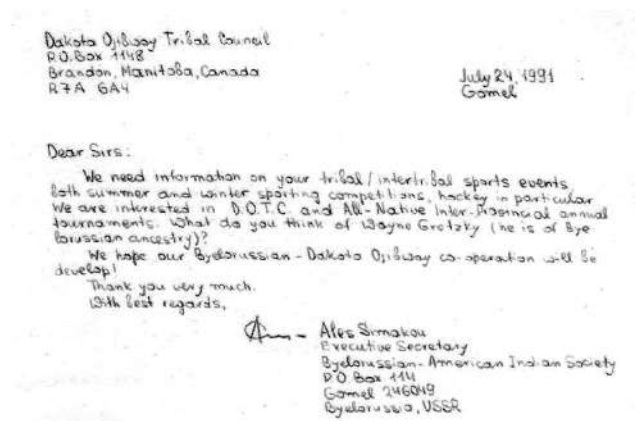 Dakota Ojibway Tribal Council
P.O. Box 1148
Brandon, Manitoba, Canada
R7A 6A4
July 24, 1991
Gomel
Dear Sirs:
We need information on your tribal/intertribal sports events,
both summer and winter sporting competitions, hockey in particular
We are interested in D.O.T.C. and All-Native Inter-Provincial annual
tournaments. What do you think of Wayne Gretzky (he is of Bye
lorussian ancestry)?
We hope our Byelorussian-Dakota Ojibway co-operation will be
develop!
Thank you very much.
With best regards,
Ales Simakou
Executive Secretary
Byelorussian-American Indian Society
P.O. Box 114
Gomel 246049
Byelorussia, USSR